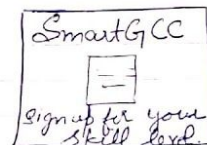 SmartGCC
Sign up for your
skill level.